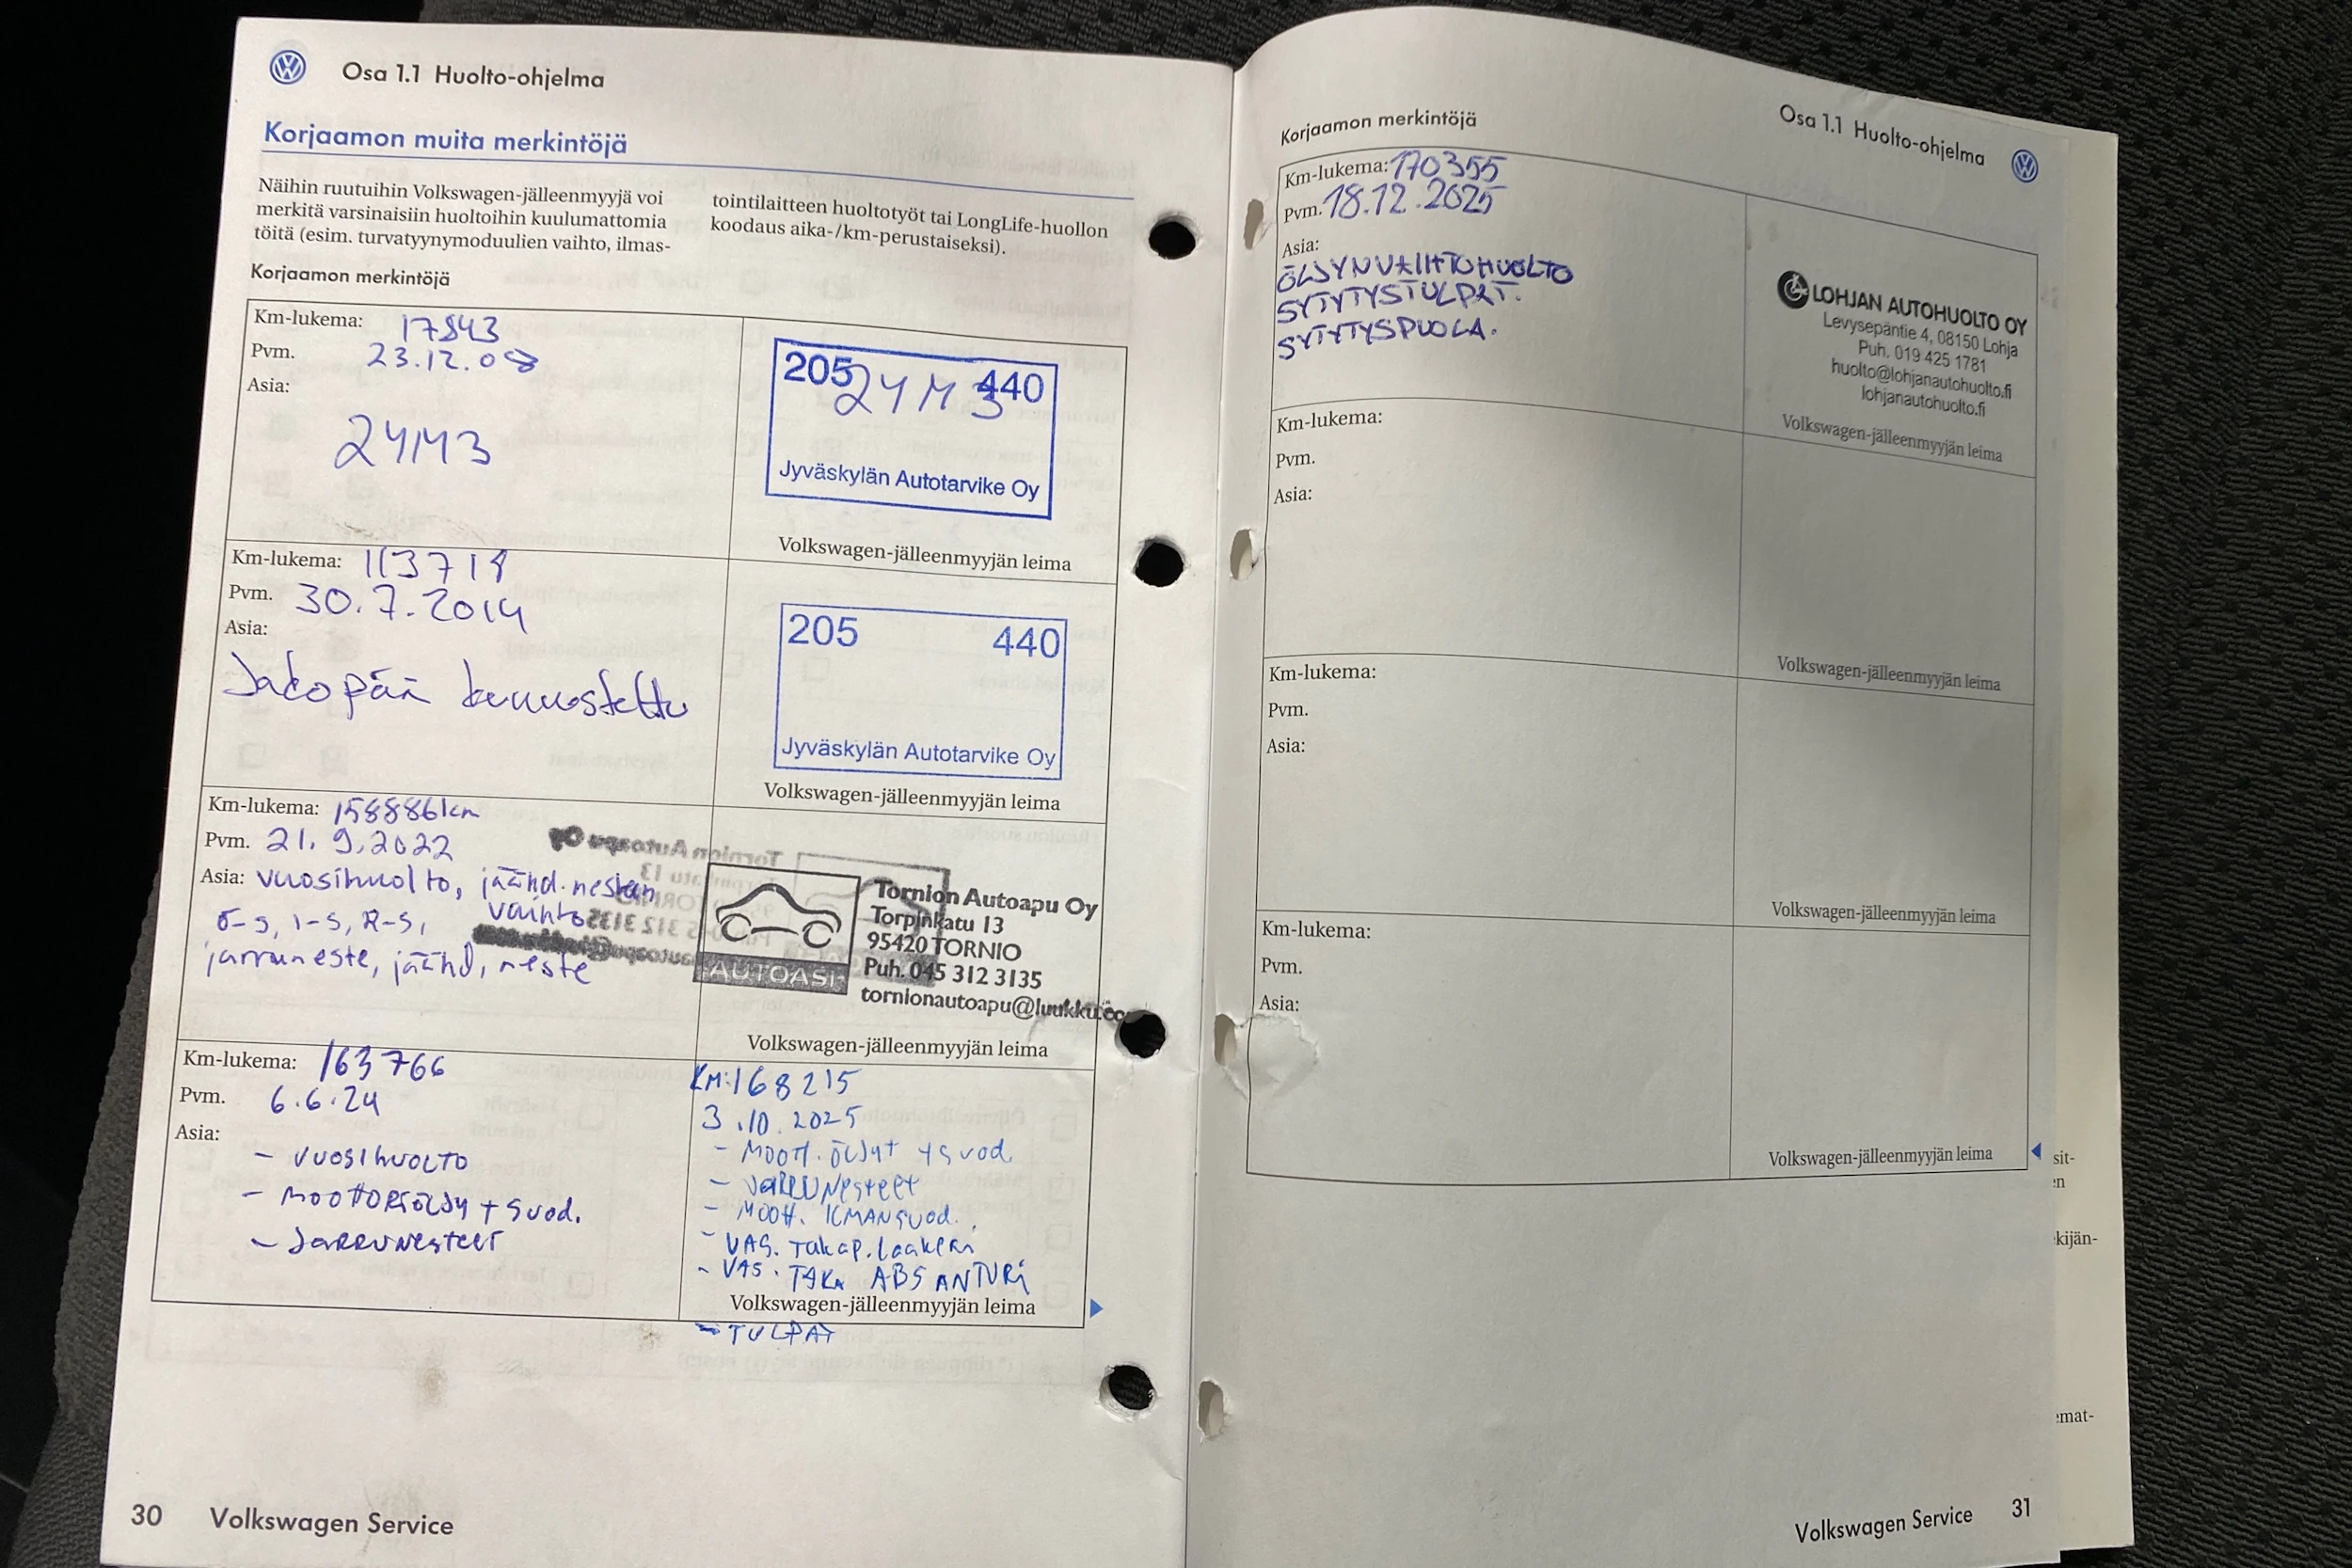 Osa 1.1 Huolto-ohjelma
Korjaamon muita merkintöjä
Näihin ruutuihin Volkswagen-jälleenmyyjä voi
merkitä varsinaisiin huoltoihin kuulumattomia
töitä (esim. turvatyynymoduulien vaihto, ilmas-
tointilaitteen huoltotyöt tai LongLife-huollon
koodaus aika-/km-perustaiseksi).
Korjaamon merkintöjä
Km-lukema: 17843
Pvm. 23.12.08
Asia:
24M3
205 440
24M3
Jyväskylän Autotarvike Oy
Volkswagen-jälleenmyyjän leima
Km-lukema: 113718
Pvm. 30.7.2014
Asia:
Jakopään kunnostettu
205 440
Jyväskylän Autotarvike Oy
Volkswagen-jälleenmyyjän leima
Km-lukema: 158886km
Pvm. 21.9.2022
Asia: vuosihuolto, jäähd.nesteen
vaihto
ö-s, i-s, R-s,
jarruneste, jäähd, neste
AUTOASI
Tornion Autoapu Oy
Torpinkatu 13
95420 TORNIO
Puh. 045 312 3135
tornionautoapu@luukku.co
Volkswagen-jälleenmyyjän leima
Km-lukema: 163766
Pvm. 6.6.24
Asia:
- VUOSIHUOLTO
- MOOTTORIÖLJY + suod.
- JARRUNESTEET
KM:168215
3.10.2025
- MOOTT. ÖLJYT + suod.
- JARRUNESTEET
- MOOTT. ILMANSUOD.
- VAS. TAKAP. Laakeri
- VAS. TAKA ABS ANTURi
Volkswagen-jälleenmyyjän leima
- TULPAT
30 Volkswagen Service
Osa 1.1 Huolto-ohjelma
Korjaamon merkintöjä
Km-lukema: 170355
Pvm. 18.12.2025
Asia:
ÖLJYNVAIHTOHUOLTO
SYTYTYSTULPAT.
SYTYTYSPUOLA.
LOHJAN AUTOHUOLTO OY
Levysepäntie 4, 08150 Lohja
Puh. 019 425 1781
huolto@lohjanautohuolto.fi
lohjanautohuolto.fi
Volkswagen-jälleenmyyjän leima
Km-lukema:
Pvm.
Asia:
Volkswagen-jälleenmyyjän leima
Km-lukema:
Pvm.
Asia:
Volkswagen-jälleenmyyjän leima
Km-lukema:
Pvm.
Asia:
Volkswagen-jälleenmyyjän leima
sit-
kijän-
Volkswagen Service 31